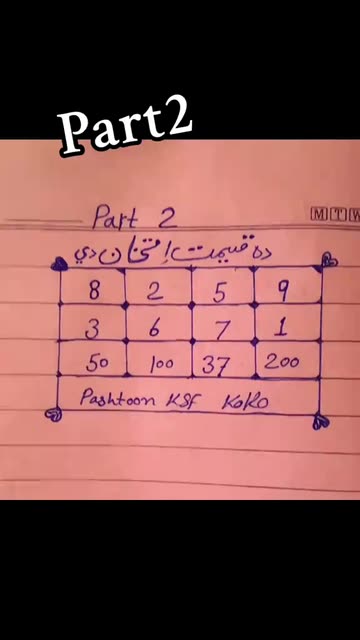 Part2
Part 2
M T W
ده قسمت امتحان دي
8 2 5 9
3 6 7 1
50 100 37 200
Pashtoon KSF KoKo